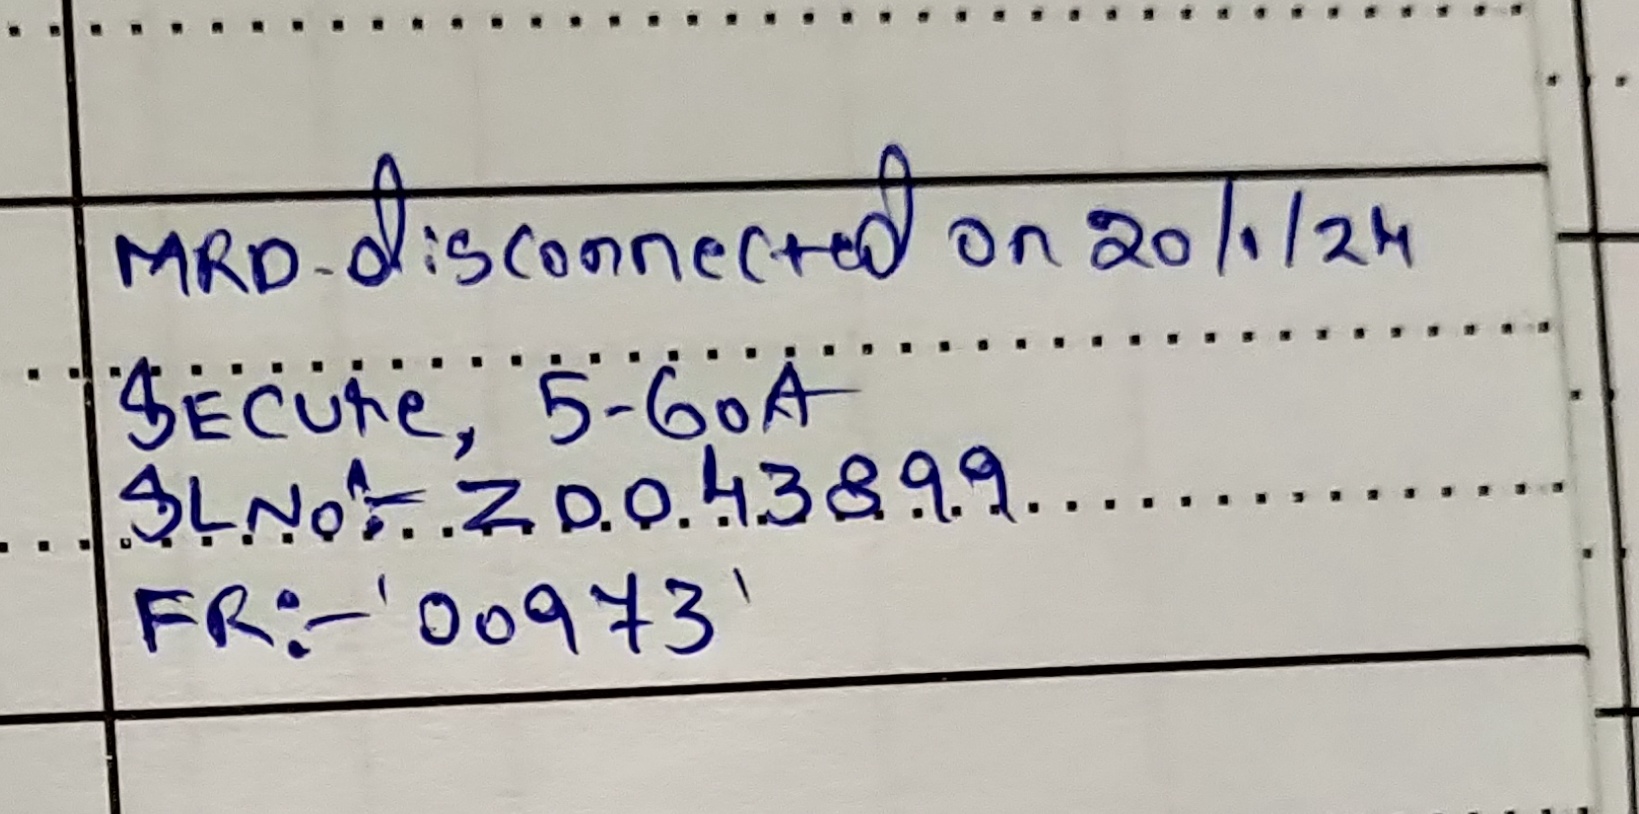 MRD-disconnected on 20/1/24
SECURe, 5-60A
SLNo:- ZD043899
FR:-'00973'